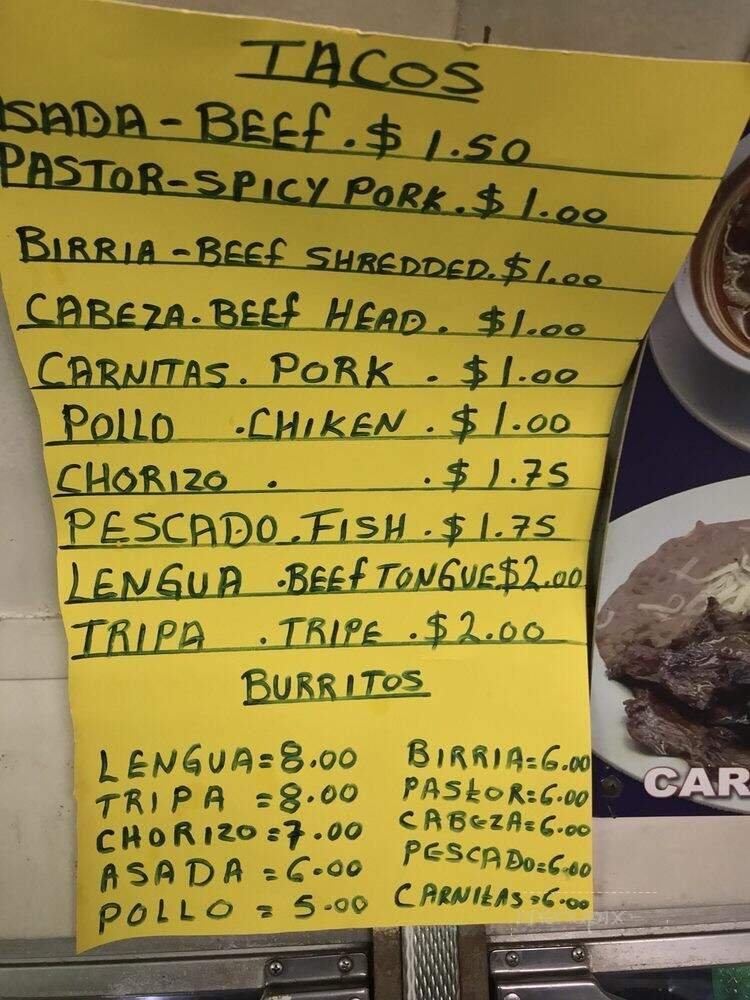 TACOS
ASADA - BEEf . $ 1.50
PASTOR-SPICY PORK . $ 1.00
BIRRIA - BEEf SHREDDED. $1.00
CABEZA. BEEf HEAD . $1.00
CARNITAS . PORK . $1.00
POLLO .CHIKEN . $ 1.00
CHORIZO . . $ 1.75
PESCADO . FISH . $ 1.75
LENGUA .BEEf TONGUE $2.00
TRIPA . TRIPE . $2.00
BURRITOS
LENGUA=8.00
TRIPA =8.00
CHORIZO=7.00
ASADA =6.00
POLLO = 5.00
BIRRIA=6.00
PAStOR=6.00
CABEZA=6.00
PESCADO=6.00
CARNItAS=6.00
CAR